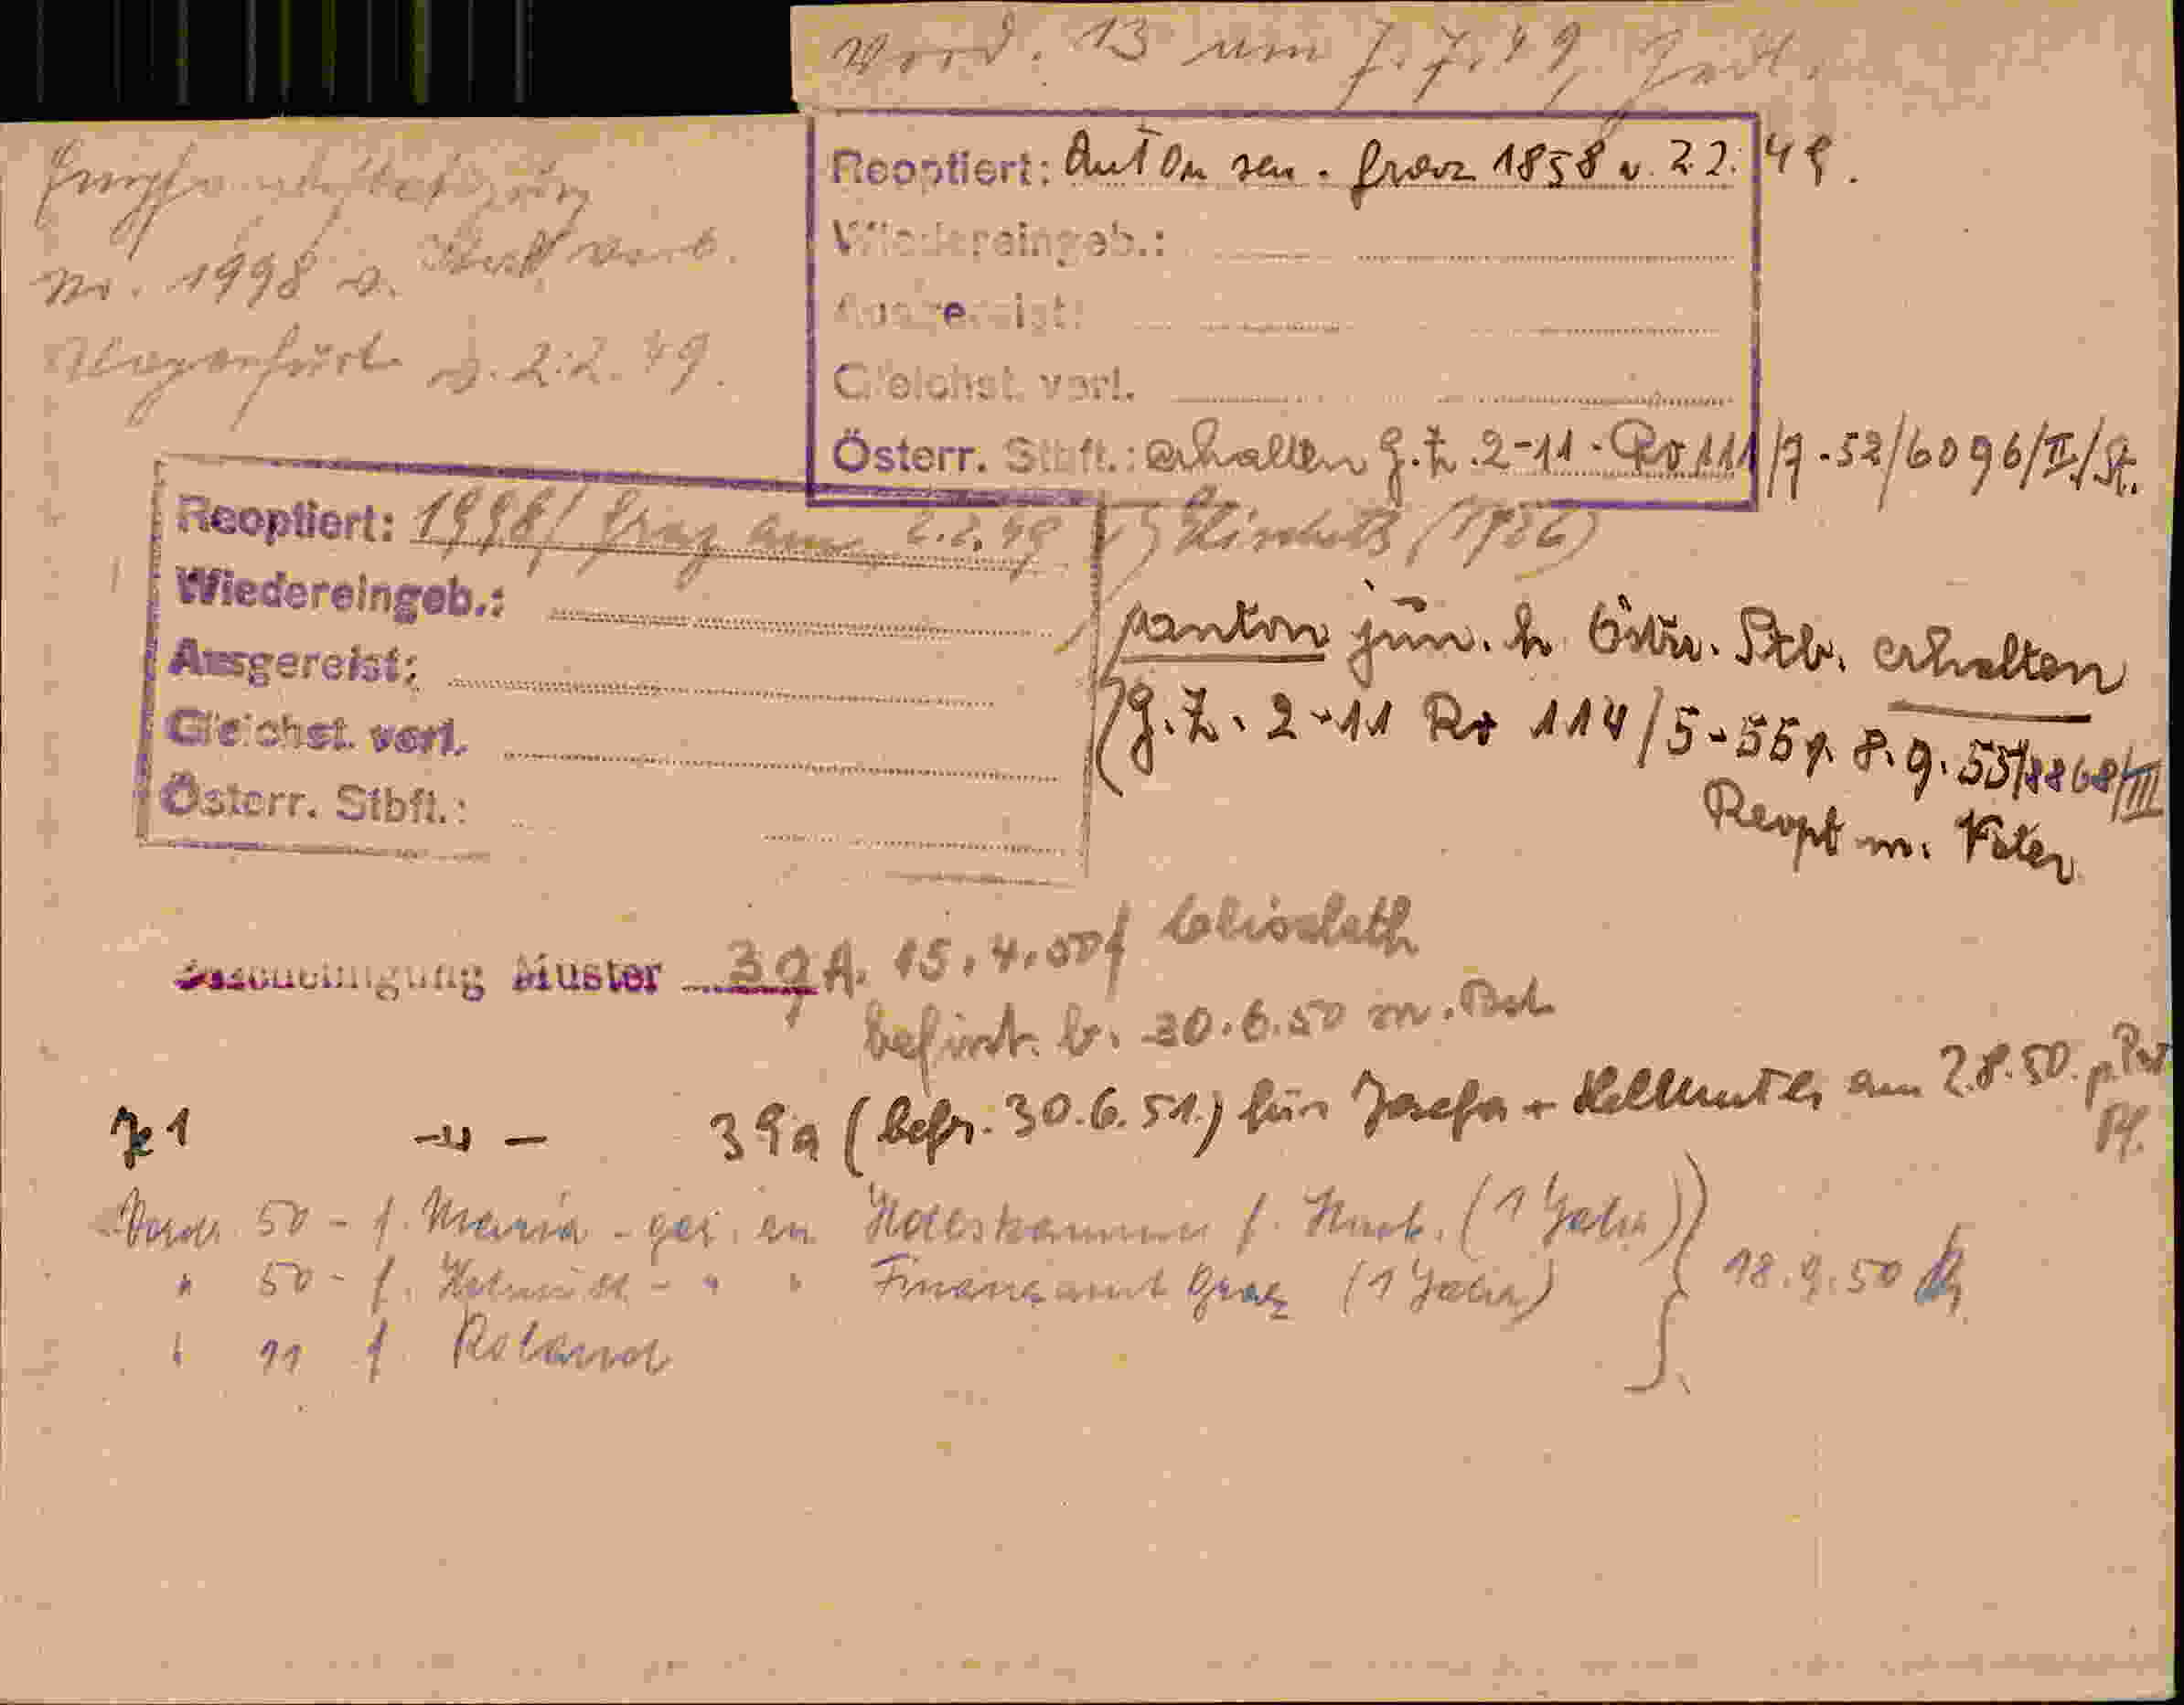 Vord. 13 um 7.7.49
Reoptiert: Anton sen. Graz 1858 v. 2.2.49.
Wiedereingeb.:
Ausgereist:
Gleichst. verl.
Österr. Stbft.: erhalten g.Z. 2-11. Ro 111/7.52/6096/II/St.
Empfangsbestätigung
Nr. 1998 v.
Klagenfurt v. 2.2.49.
Reoptiert: 1998/ Graz am 2.2.49
Wiedereingeb.:
Ausgereist:
Gleichst. verl.
Österr. Stbft.:
(1926)
anton jun. h. Östr. Stb. erhalten
g.Z. 2-11 Ro 114/5-55 v. 8.9.55/8868/III
Reopt m. Vater
Bescheinigung Muster 39A. 15.4.50 f
befrist. b. 30.6.50 m.
39a (befr. 30.6.51.) für Josefa + Hellmuth am 2.8.50. p. Post
Vordr. 50 - f. Maria - ger. an (1 Jahr)
" 50 - f. Helmuth - " " Finanzamt Graz (1 Jahr) 18.9.50
" 11 f. Roland